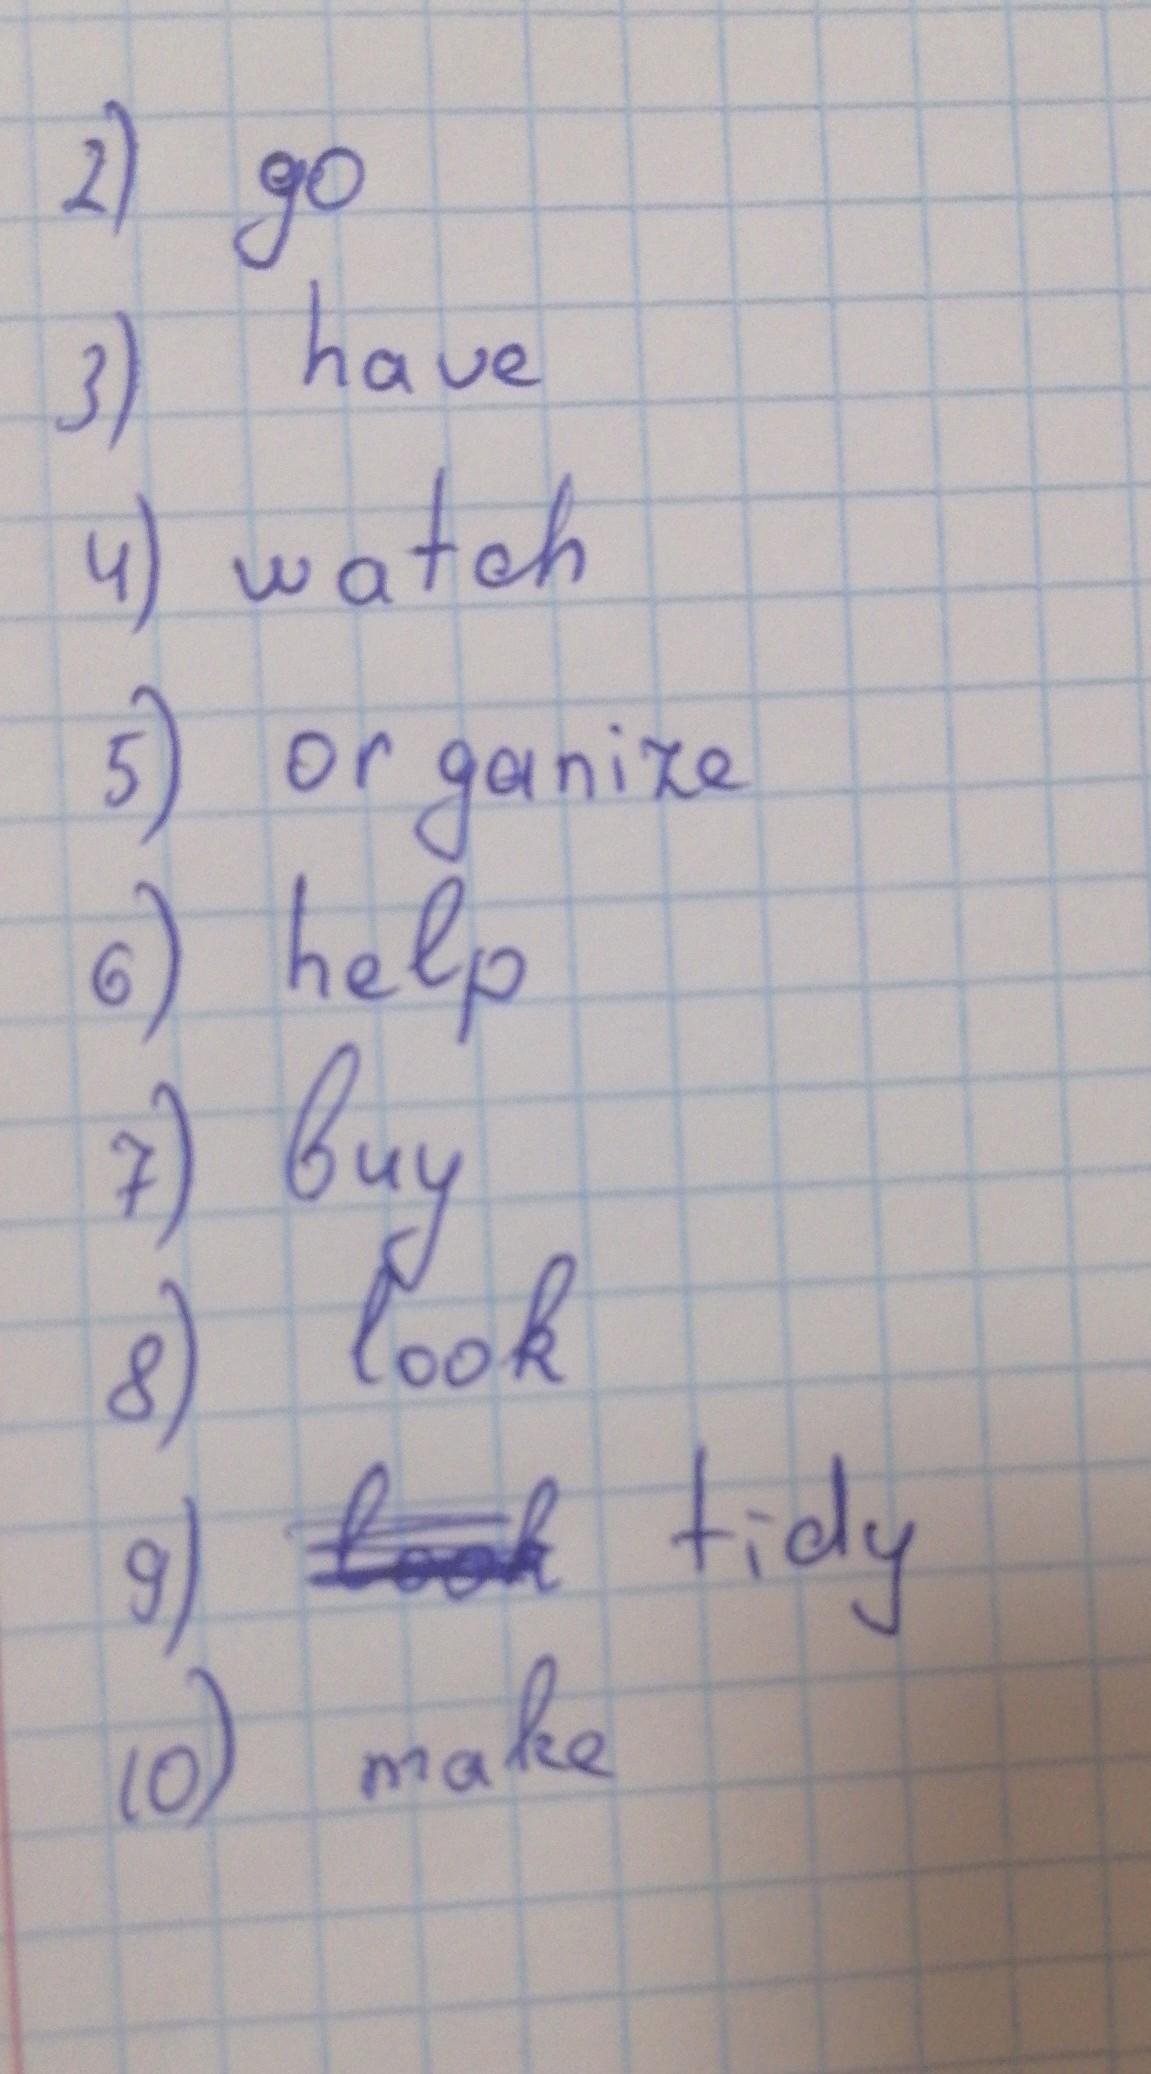 2) go
3) have
4) watch
5) organize
6) help
7) buy
8) look
9) look tidy
10) make